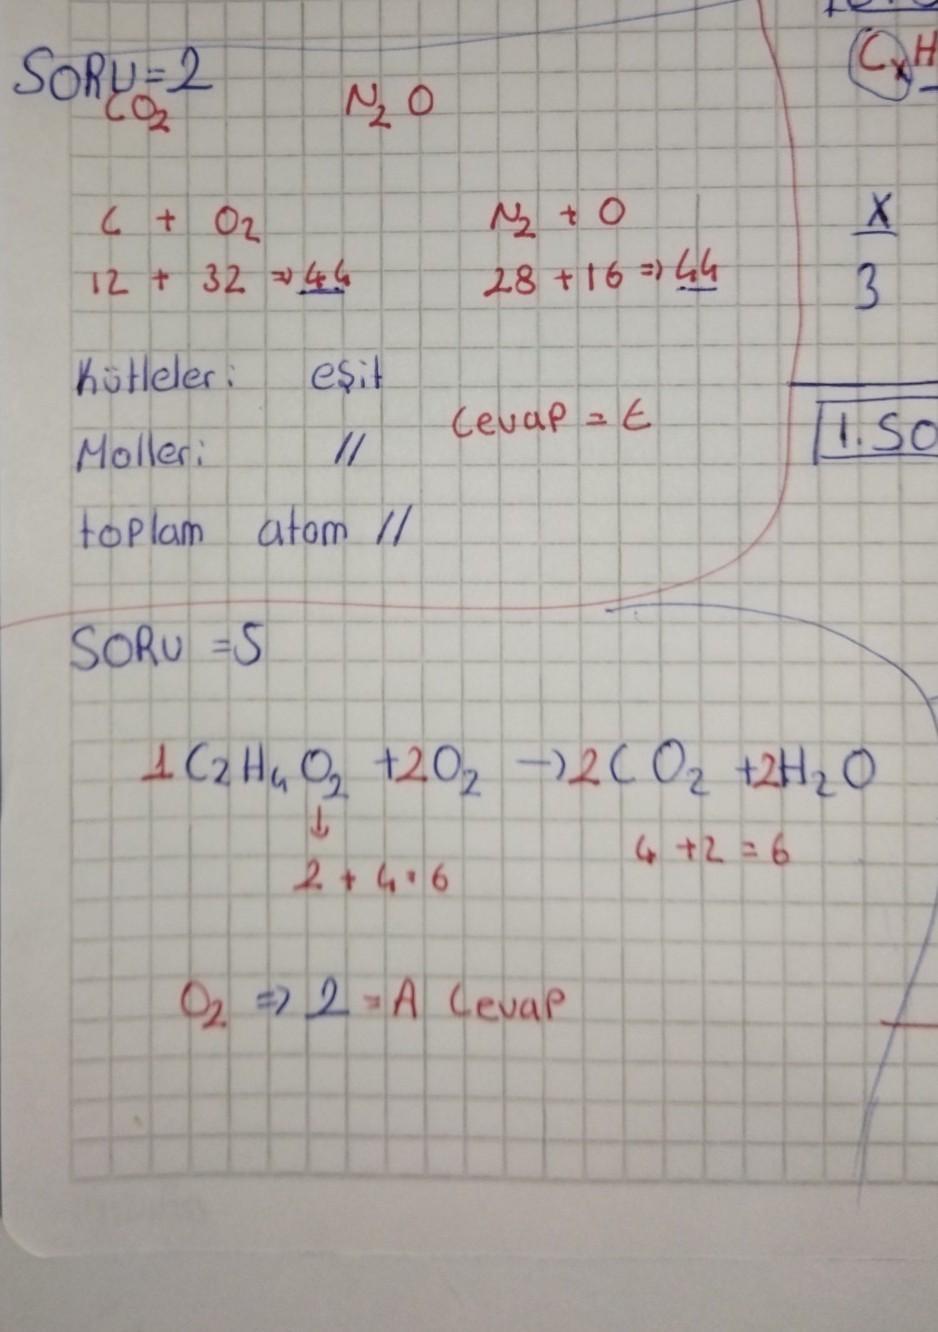 SORU=2
CO₂ N₂O
C + O₂ N₂ + O
12 + 32 ⇒ 44 28 + 16 ⇒ 44
Kütleler: eşit
Cevap = E
Moller: //
toplam atom //
CxH
X
3
1. SO
SORU = 5
1 C₂H₄O₂ + 2O₂ → 2CO₂ + 2H₂O
↓
2 + 4 = 6 4 + 2 = 6
O₂ ⇒ 2 = A Cevap